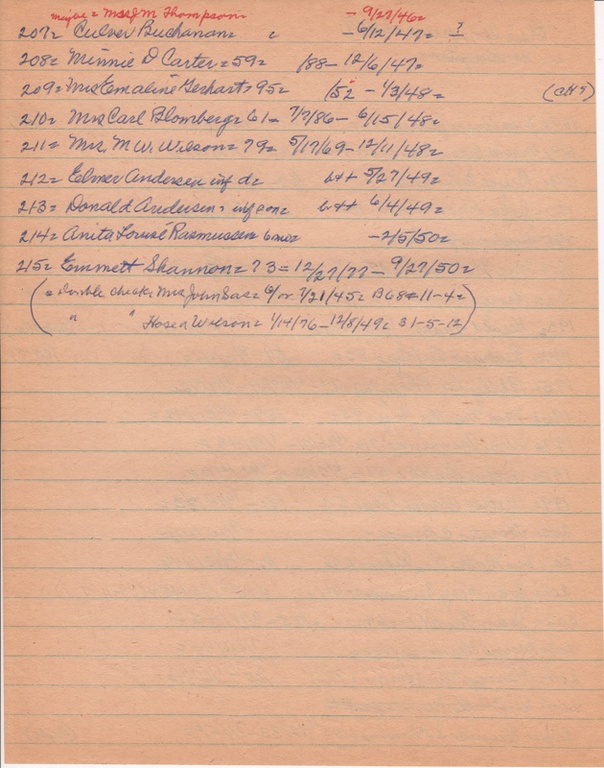 maybe = Mrs J M Thompson= - 9/27/46=
207= Culver Buchanan= = - 6/12/47= ?
208= Minnie D Carter = 59= /88 - 12/6/47=
209= Mrs Emaline Gerhart = 95= /52 - 1/3/48= (CH?)
210= Mrs Carl Blomberg = 61 = 7/7/86 - 6/15/48=
211= Mrs. M W. Wilson = 79 = 5/17/69 - 12/11/48=
212= Elmer Andersen inf d= b++ 5/27/49=
213= Donald Andersen = inf son= b++ 6/4/49=
214= Anita Louise Rasmussen = 6 mo= - 2/5/50=
215= Emmett Shannon = 73 = 12/27/77 - 9/27/50=
( = double check = Mrs John Sas = 6/or 7/21/45= B 68 = 11-4=
" " Hosea Wilson = 1/14/76 - 12/8/49= 31-5-12)